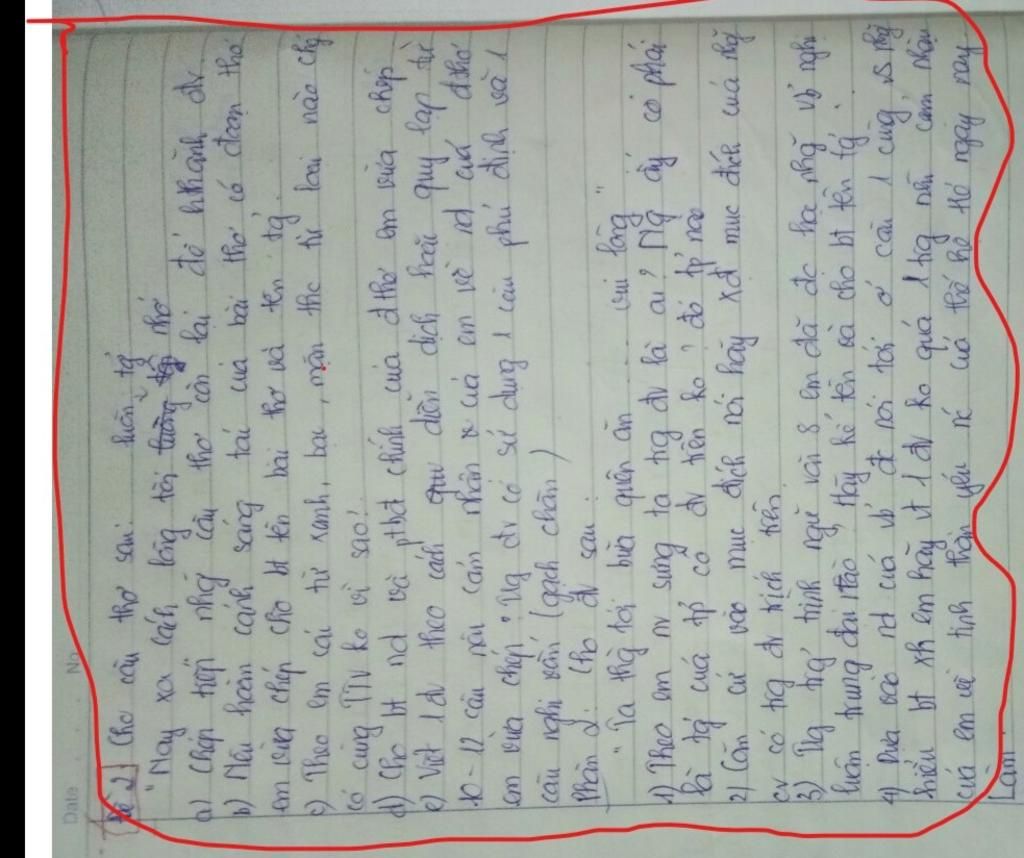 Date No
Đề 2) Cho câu thơ sau:
"Nay xa cách lòng tôi luôn tg nhớ
a) Chép tiếp nhg câu thơ còn lại để hthành đv
b) Nêu hoàn cảnh sáng tác của bài thơ có đoạn thơ
em vừa chép cho bt tên bài thơ và tên tg.
c) Theo em các từ xanh, bạc, mặn thc từ loại nào chg
có cùng TTV ko vì sao?
d) Cho bt nd và ptbđ chính của đthơ em vừa chép
e) Viết 1 đv theo cách diễn dịch hoặc quy lạp từ
10-12 câu nêu cảm nhận của em về nd của đthơ
em vừa chép? Tg đv có sử dụng 1 câu phủ định và 1
câu nghi vấn (gạch chân)
Phần 2: Cho đv sau:
"Ta thg tới bữa quên ăn ..... vui lòng"
1) Theo em nv xưng ta trg đv là ai? Ng ấy có phải
là tg của tp có đv trên ko? đó tp nào
2) Căn cứ vào mục đích nói hãy xđ mục đích của nhg
cv có trg đv trích trên
3) Tg trg trình ngữ văn 8 em đã đc học nhg vb nghị
luận trung đại nào, Hãy kể tên và cho bt tên tg?
4) Dựa vào nd của vb đc nói tới ở câu 1 cùng vs nhg
hiểu bt xh em hãy vt 1 đv ko quá 1 trg nêu cảm nhận
của em về tinh thần yêu nc của thế hệ trẻ ngày nay
Làm